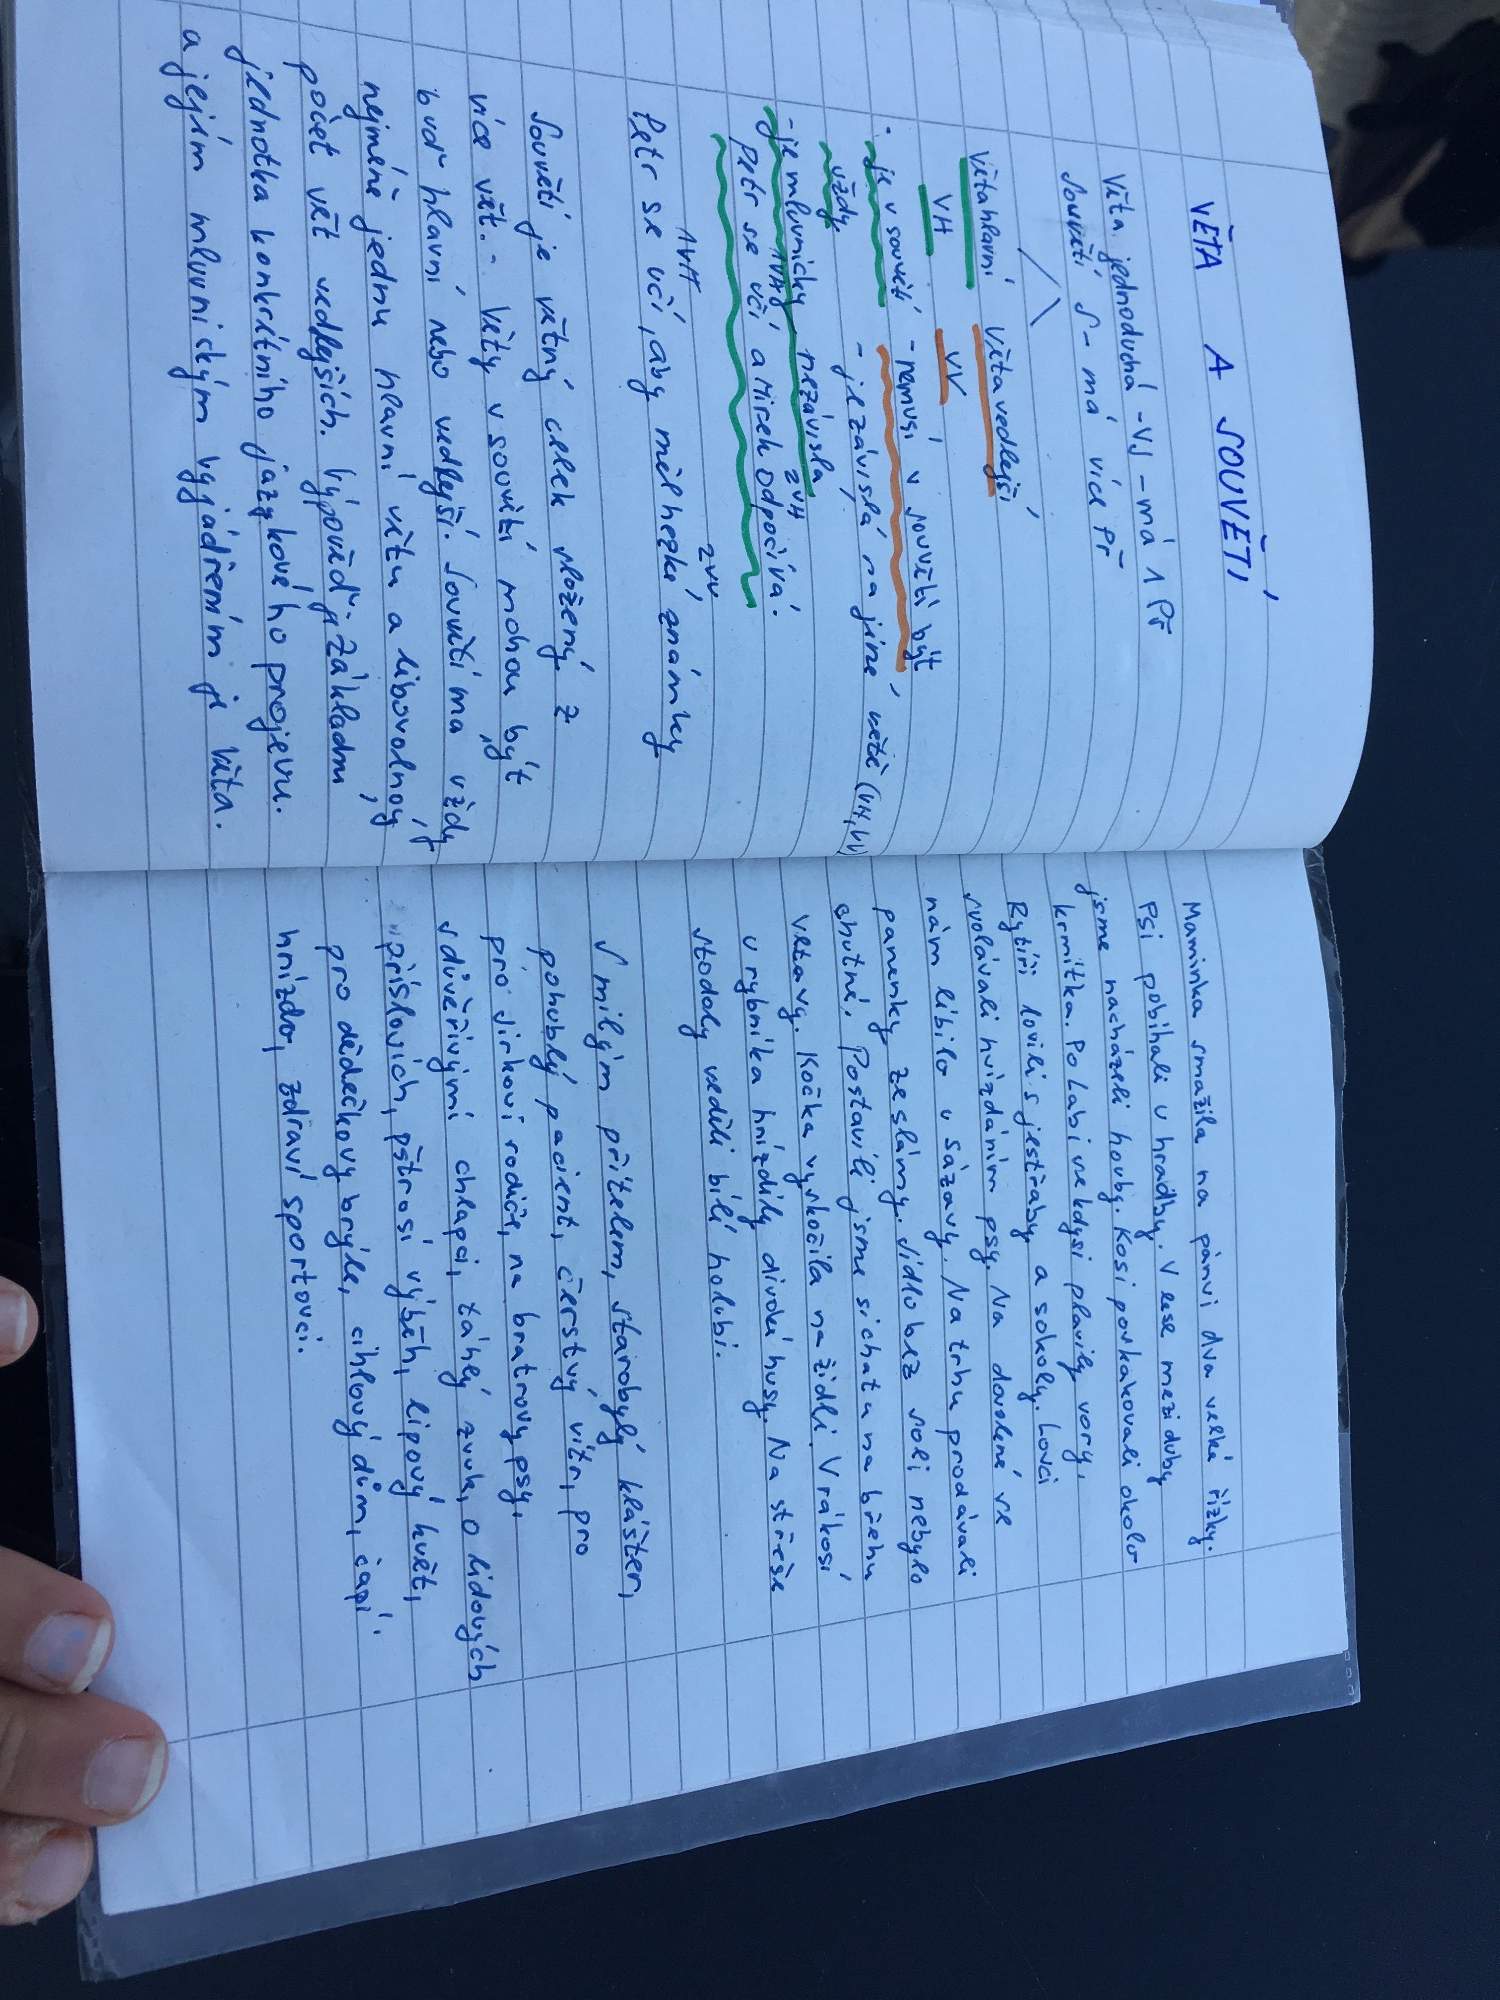 VĚTA A SOUVĚTÍ
Věta jednoduchá - VJ - má 1 Př
Souvětí S - má více Př
Věta hlavní Věta vedlejší
VH VV
- je v souvětí - nemusí v souvětí být
vždy - je závislá na jiné větě (VH, VV)
- je mluvnicky nezávislá
1VH 2VH
Petr se učí a Mirek odpočívá.
1VH 2VV
Petr se učí, aby měl hezké známky
Souvětí je větný celek složený z
více vět. - Věty v souvětí mohou být
buď hlavní nebo vedlejší. Souvětí má vždy
nejméně jednu hlavní větu a libovolný
počet vět vedlejších. Výpověď: základní
jednotka konkrétního jazykového projevu.
a jejím mluvnickým vyjádřením je věta.
Maminka smažila na pánvi dva velké řízky.
Psi pobíhali u hradby. V lese mezi duby
jsme nacházeli houby. Kosi poskakovali okolo
krmítka. Po Labi kdysi plavily vory.
Rytíři lovili s jestřáby a sokoly. Lovci
svolávali hvízdáním psy. Na dovolené se
nám líbilo u Sázavy. Na trhu prodávali
panenky ze slámy. Jídlo bez soli nebylo
chutné. Postavili jsme si chatu na břehu
Vltavy. Kočka vyskočila na židli. V rákosí
u rybníka hnízdily divoké husy. Na střeše
stodoly seděli bílí holubi.
S milým přítelem, starobylý klášter,
pohublý pacient, čerstvý vítr, pro
pro Jirkovi rodiče, na bratrovy psy,
s důvěřivými chlapci, táhlý zvuk, o lidových
příslovích, pštrosí výběh, lipový květ,
pro dědečkovy brýle, cihlový dům, čapí
hnízdo, zdraví sportovci.